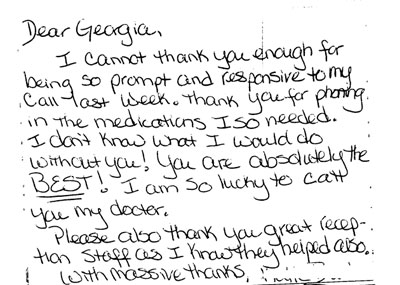 Dear Georgia,
I cannot thank you enough for
being so prompt and responsive to my
call last week. Thank you for phoning
in the medications I so needed.
I don't know what I would do
without you! You are absolutely the
BEST! I am so lucky to call
you my doctor.
Please also thank you great recep-
tion staff as I know they helped also.
With massive thanks,